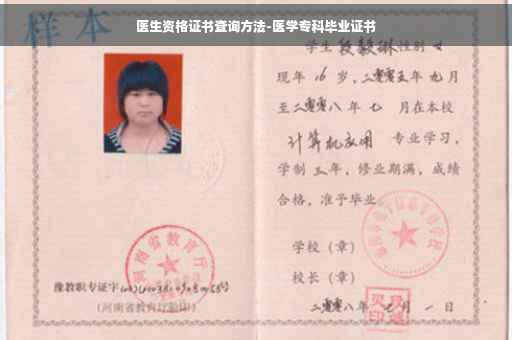 医生资格证书查询方法-医学专科毕业证书
样本
学生 段毅琳 性别 女
现年 16 岁，二零零五年 九 月
至二零零八年 七 月在本校
计算机应用 专业学习，
学制 三 年，修业期满，成绩
合格，准予毕业
学校（章）
校长（章）
二零零八年 七 月 一 日
河南省教育厅
豫教职专证字
（河南省教育厅监印）